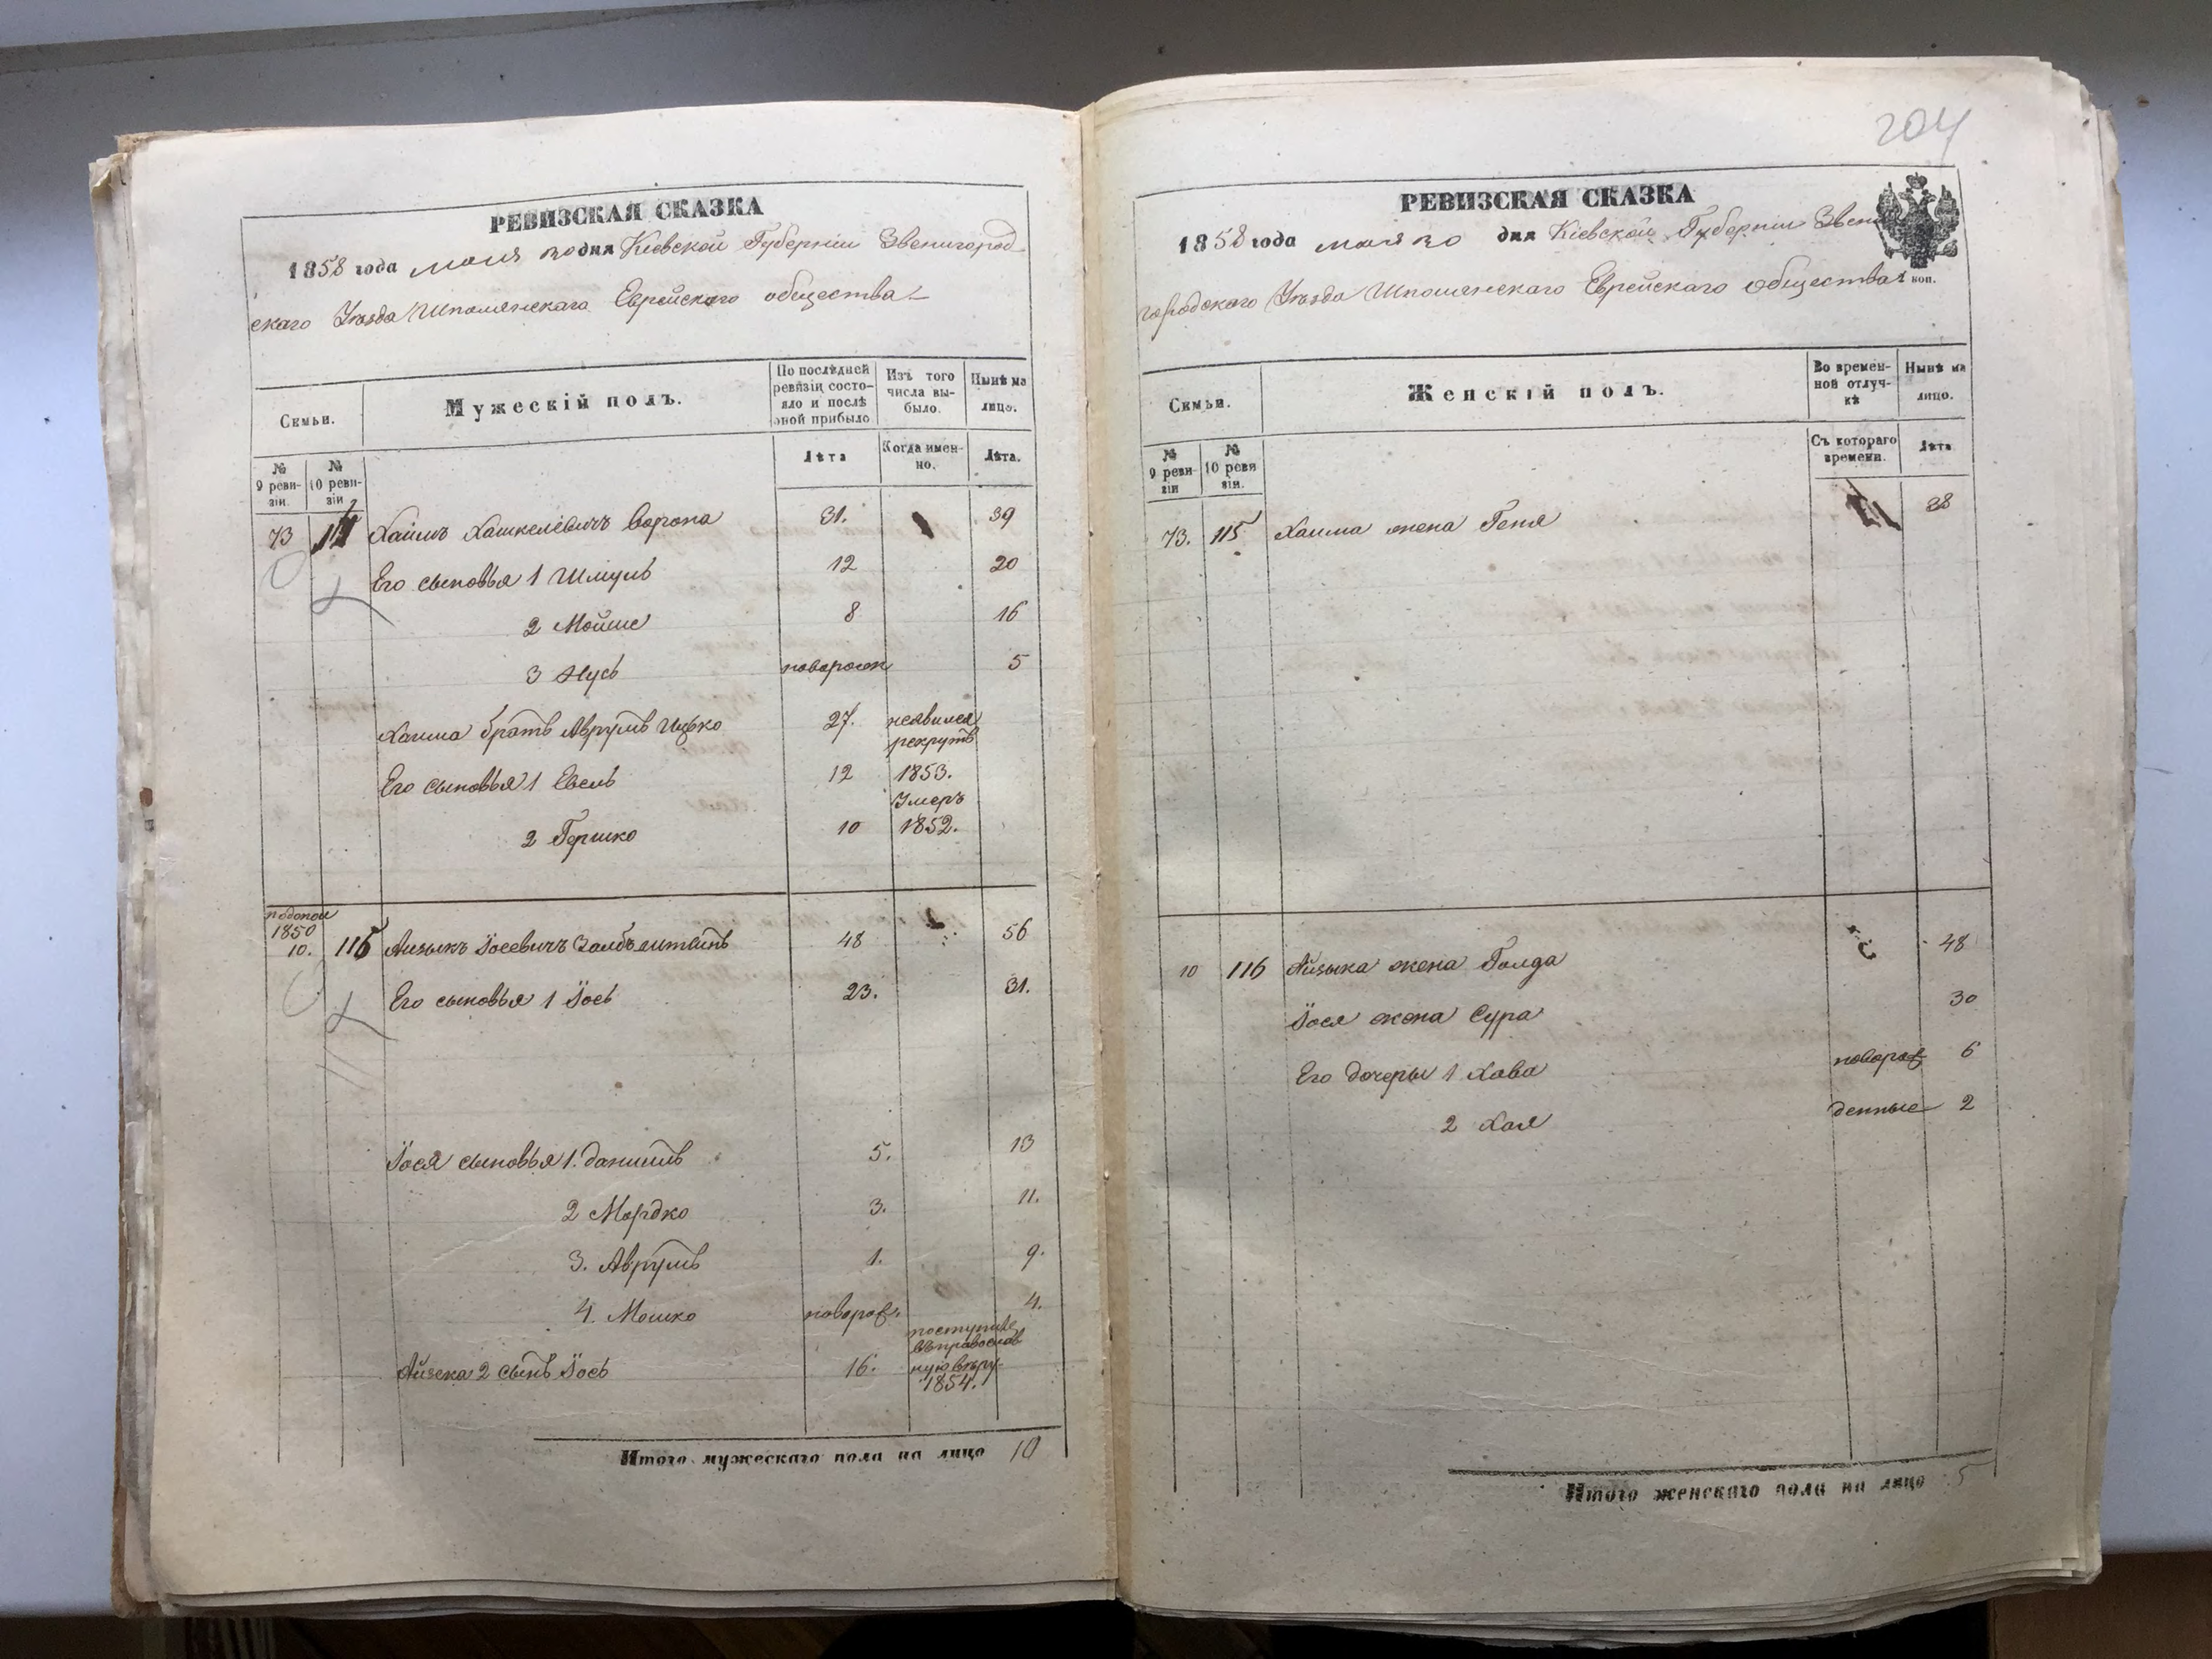 РЕВИЗСКАЯ СКАЗКА
1858 года мая 20 дня Кіевской Губерніи Звенигород-
скаго Уѣзда Шполянскаго Еврейскаго общества
Семьи.
Мужескій полъ.
По послѣдней ревизіи состояло и послѣ оной прибыло
Изъ того числа выбыло.
Нынѣ на лицо.
№ 9 ревизіи.
№ 10 ревизіи
Лѣта
Когда именно.
Лѣта.
73 Хаимъ Хашкелевичъ Ворона 31. 39
Его сыновья 1 Шмуль 12 20
2 Мойше 8 16
3 Нусь новорожд 5
Хаима братъ Аврумъ Ицько 27. неявился рекрутъ
Его сыновья 1 Евель 12 1853.
Умеръ
2 Гершко 10 1852.
1850
10. 116 Айзыкъ Іосевичъ 48 56
Его сыновья 1 Іось 23. 31.
Іося сыновья 1. Даниилъ 5. 13
2 Мордко 3. 11.
3. Аврумъ 1. 9.
4. Мошко новорож. 4.
Айзека 2 сынъ Іось 16. поступилъ въ православную вѣру 1854.
Итого мужескаго пола на лицо 10
204
РЕВИЗСКАЯ СКАЗКА
1858 года мая 20 дня Кіевской Губерніи Звени
городскаго Уѣзда Шполянскаго Еврейскаго общества
коп.
Семьи.
Женскій полъ.
Во временной отлучкѣ
Нынѣ на лицо.
№ 9 ревизіи
№ 10 ревизіи.
Съ котораго времени.
Лѣта
73. 115 Хаима жена Геня 38
10 116 Айзыка жена Голда 48
Іося жена Сура 30
Его дочеры 1 Хава новорож 6
2 Хая денные 2
Итого женскаго пола на лицо 5